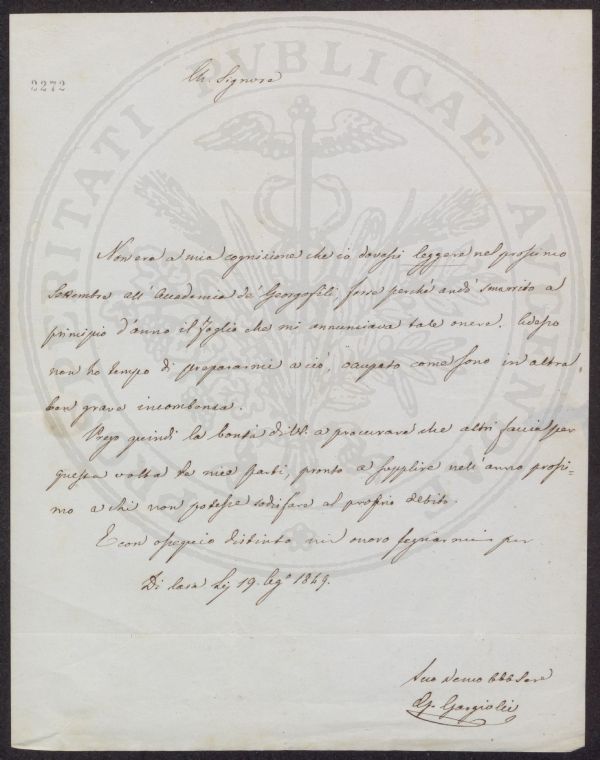 2272
Ch. Signore
Non era a mia cognizione che io dovessi leggere nel prossimo
Settembre all' Accademia de' Georgofili, forse perchè andò smarrito a
principio d'anno il foglio che mi annunciava tale onere. Adesso
non ho tempo di prepararmi a ciò, occupato come sono in altra
ben grave incombenza.
Prego quindi la bontà di V.S. a procurare che altri faccia per
questa volta le mie parti, pronto a supplire nell'anno prossi=
mo a chi non potesse sodisfare al proprio debito.
E con ossequio distinto mi onoro segnarmi per
Di Casa li 19. Ag.o 1849.
Suo Devmo Obb Serv
G. Gargiolli
PROSPERITATI PUBLICAE AUGENDAE